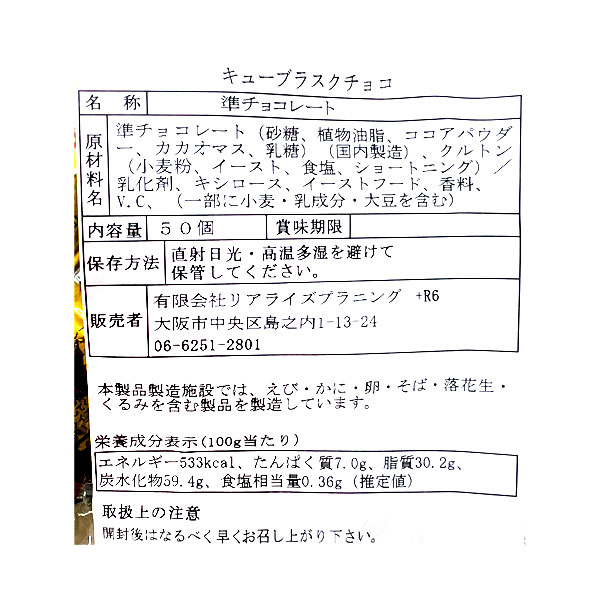 キューブラスクチョコ
名称 準チョコレート
原材料名 準チョコレート（砂糖、植物油脂、ココアパウダ
ー、カカオマス、乳糖）（国内製造）、クルトン
（小麦粉、イースト、食塩、ショートニング）／
乳化剤、キシロース、イーストフード、香料、
V.C、（一部に小麦・乳成分・大豆を含む）
内容量 ５０個 賞味期限
保存方法 直射日光・高温多湿を避けて
保管してください。
販売者 有限会社リアライズプラニング +R6
大阪市中央区島之内1-13-24
06-6251-2801
本製品製造施設では、えび・かに・卵・そば・落花生・
くるみを含む製品を製造しています。
栄養成分表示(100g当たり)
エネルギー533kcal、たんぱく質7.0g、脂質30.2g、
炭水化物59.4g、食塩相当量0.36g（推定値）
取扱上の注意
開封後はなるべく早くお召し上がり下さい。